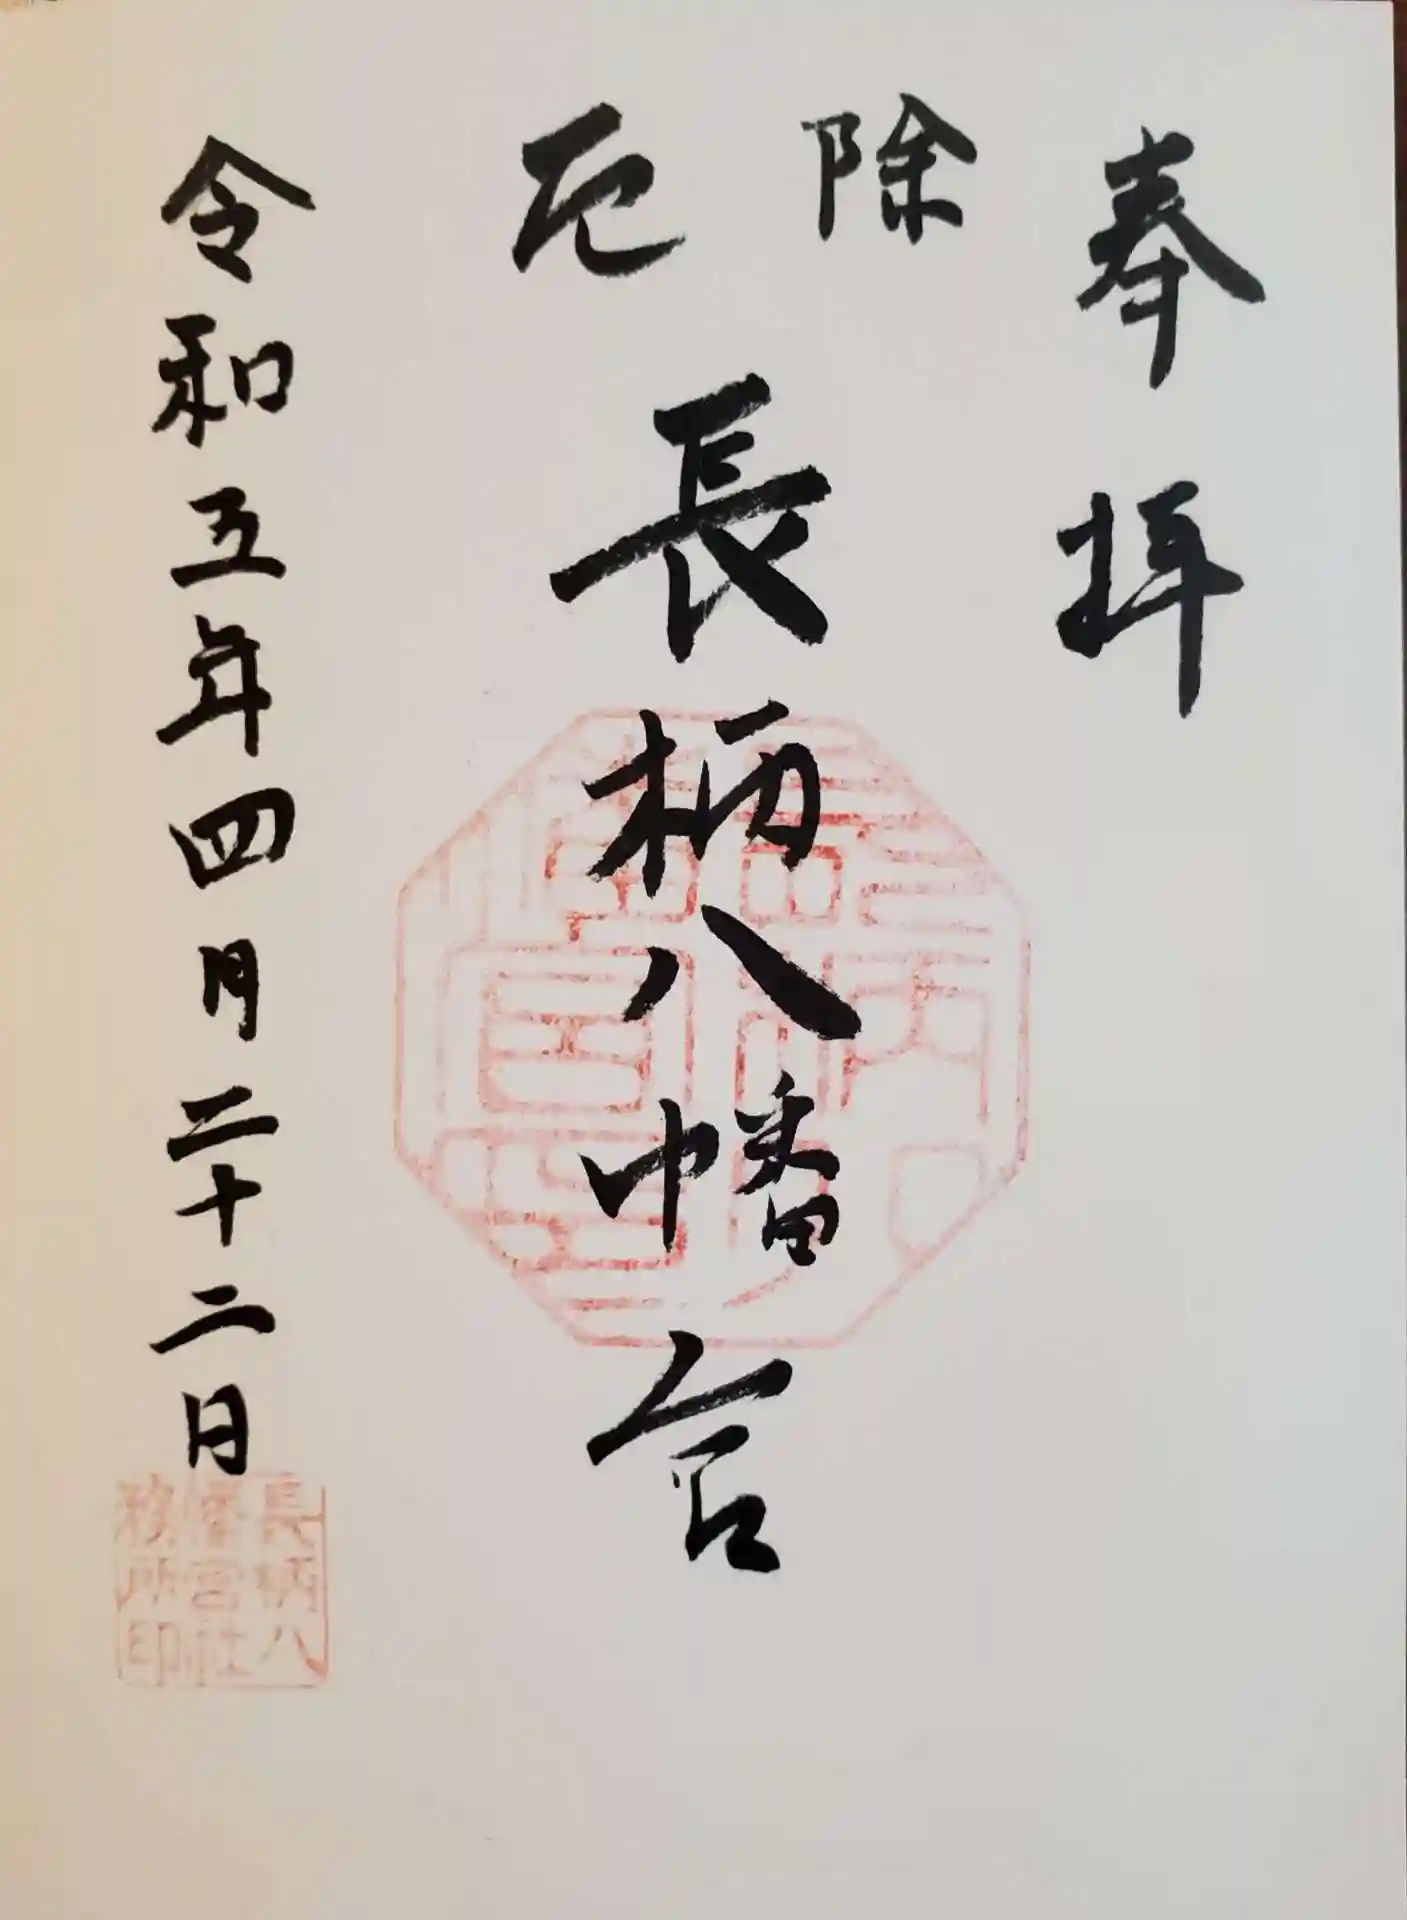 奉拝
除厄
長柄八幡宮
令和五年四月二十二日
長柄八
幡宮社
務所印